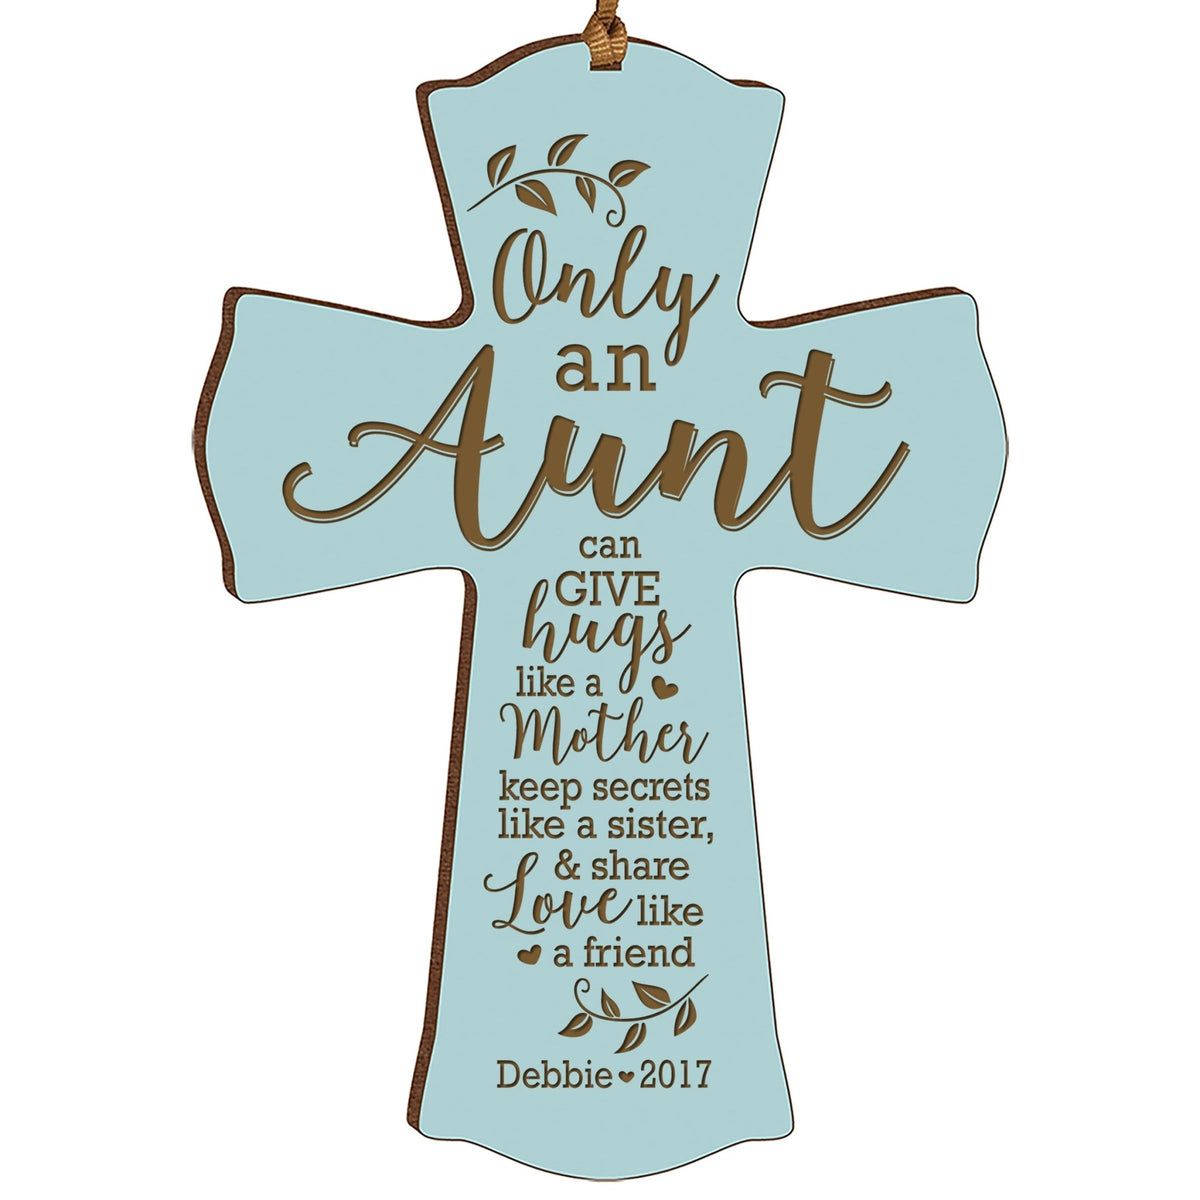 Only
an
Aunt
can
GIVE
hugs
like a
Mother
keep secrets
like a sister,
& share
Love like
a friend
Debbie ♥ 2017